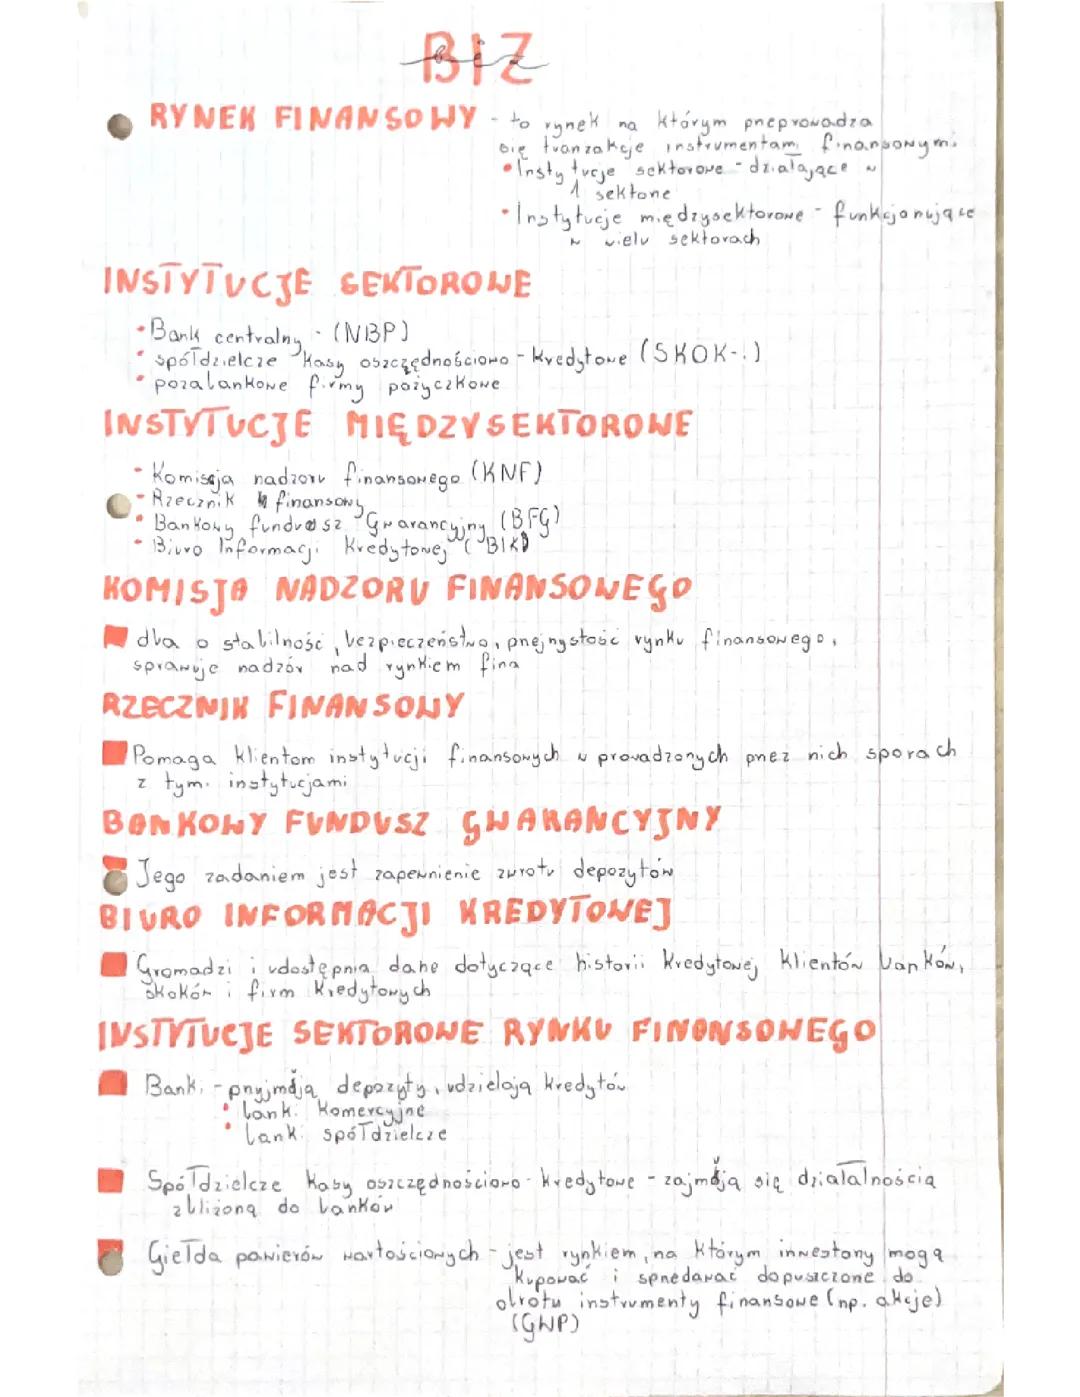 BiZ
biz
RYNEK FINANSOWY - to rynek na którym przeprowadza
się tranzakcje instrumentami finansowymi
• Instytucje sektorowe - działające w
1 sektorze
• Instytucje międzysektorowe - funkcjonujące
w wielu sektorach
INSTYTUCJE SEKTOROWE
• Bank centralny - (NBP)
• spółdzielcze kasy oszczędnościowo - kredytowe (SKOK-i)
• pozabankowe firmy pożyczkowe
INSTYTUCJE MIĘDZYSEKTOROWE
• Komisja nadzoru finansowego (KNF)
• Rzecznik finansowy
• Bankowy fundusz Gwarancyjny (BFG)
• Biuro Informacji Kredytowej (BIK)
KOMISJA NADZORU FINANSOWEGO
dba o stabilność, bezpieczeństwo, przejrzystość rynku finansowego,
sprawuje nadzór nad rynkiem fina
RZECZNIK FINANSOWY
Pomaga klientom instytucji finansowych w prowadzonych przez nich sporach
z tymi instytucjami
BANKOWY FUNDUSZ GWARANCYJNY
Jego zadaniem jest zapewnienie zwrotu depozytów
BIURO INFORMACJI KREDYTOWEJ
Gromadzi i udostępnia dane dotyczące historii kredytowej klientów banków,
skoków i firm kredytowych
INSTYTUCJE SEKTOROWE RYNKU FINANSOWEGO
Banki - przyjmują depozyty, udzielają kredytów
• banki komercyjne
• banki spółdzielcze
Spółdzielcze kasy oszczędnościowo - kredytowe - zajmują się działalnością
zbliżoną do banków
Giełda papierów wartościowych - jest rynkiem, na którym inwestorzy mogą
kupować i sprzedawać dopuszczone do
obrotu instrumenty finansowe (np. akcje)
(GWP)